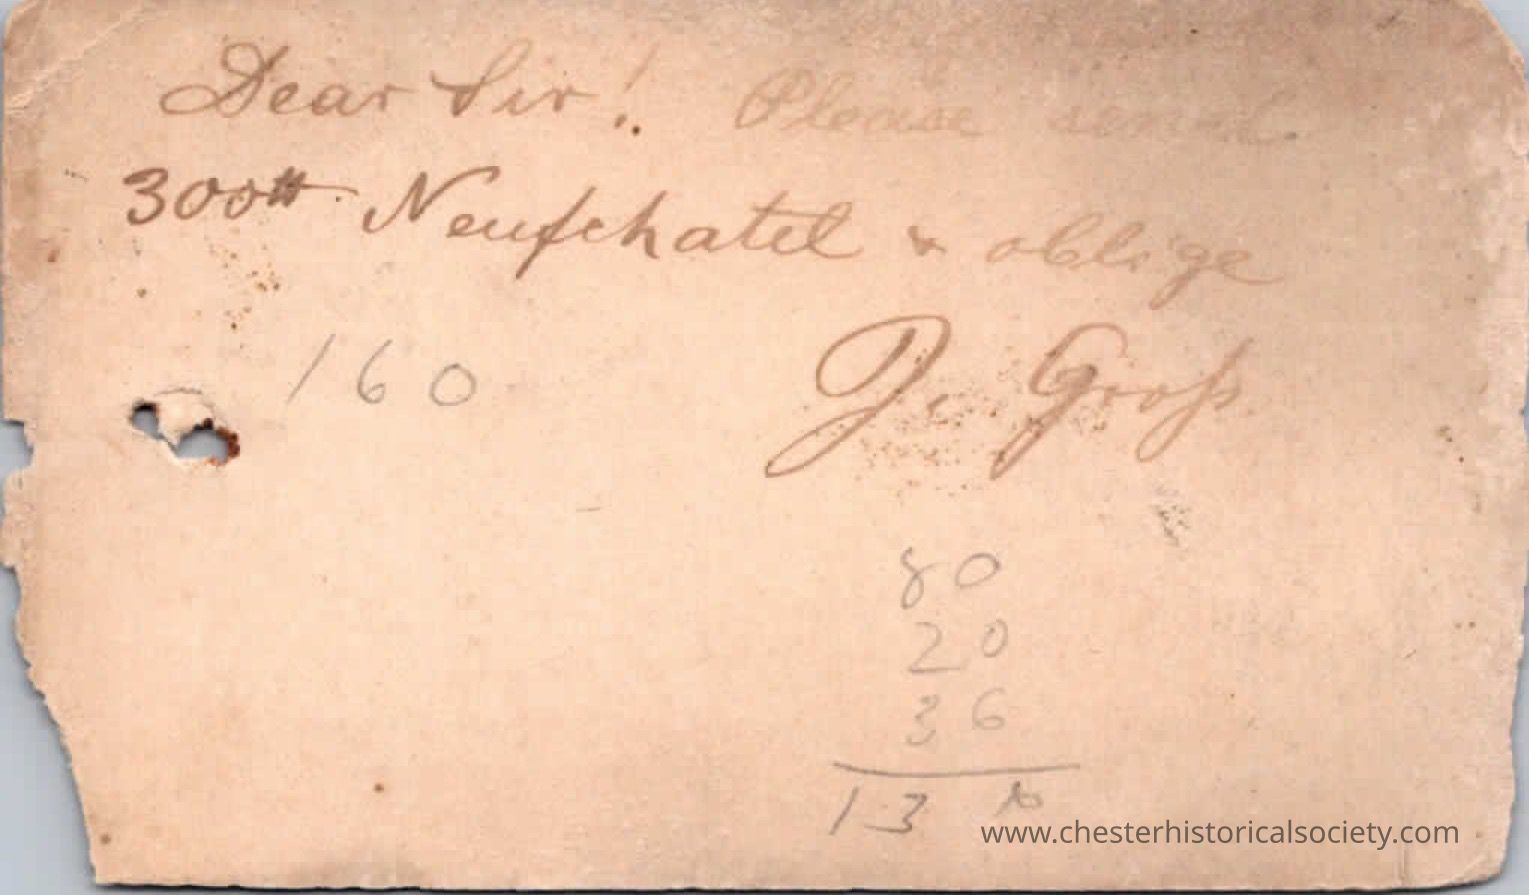 Dear Sir! Please send
300# Neufchatel & oblige
J. Groß
160
80
20
36
13
www.chesterhistoricalsociety.com